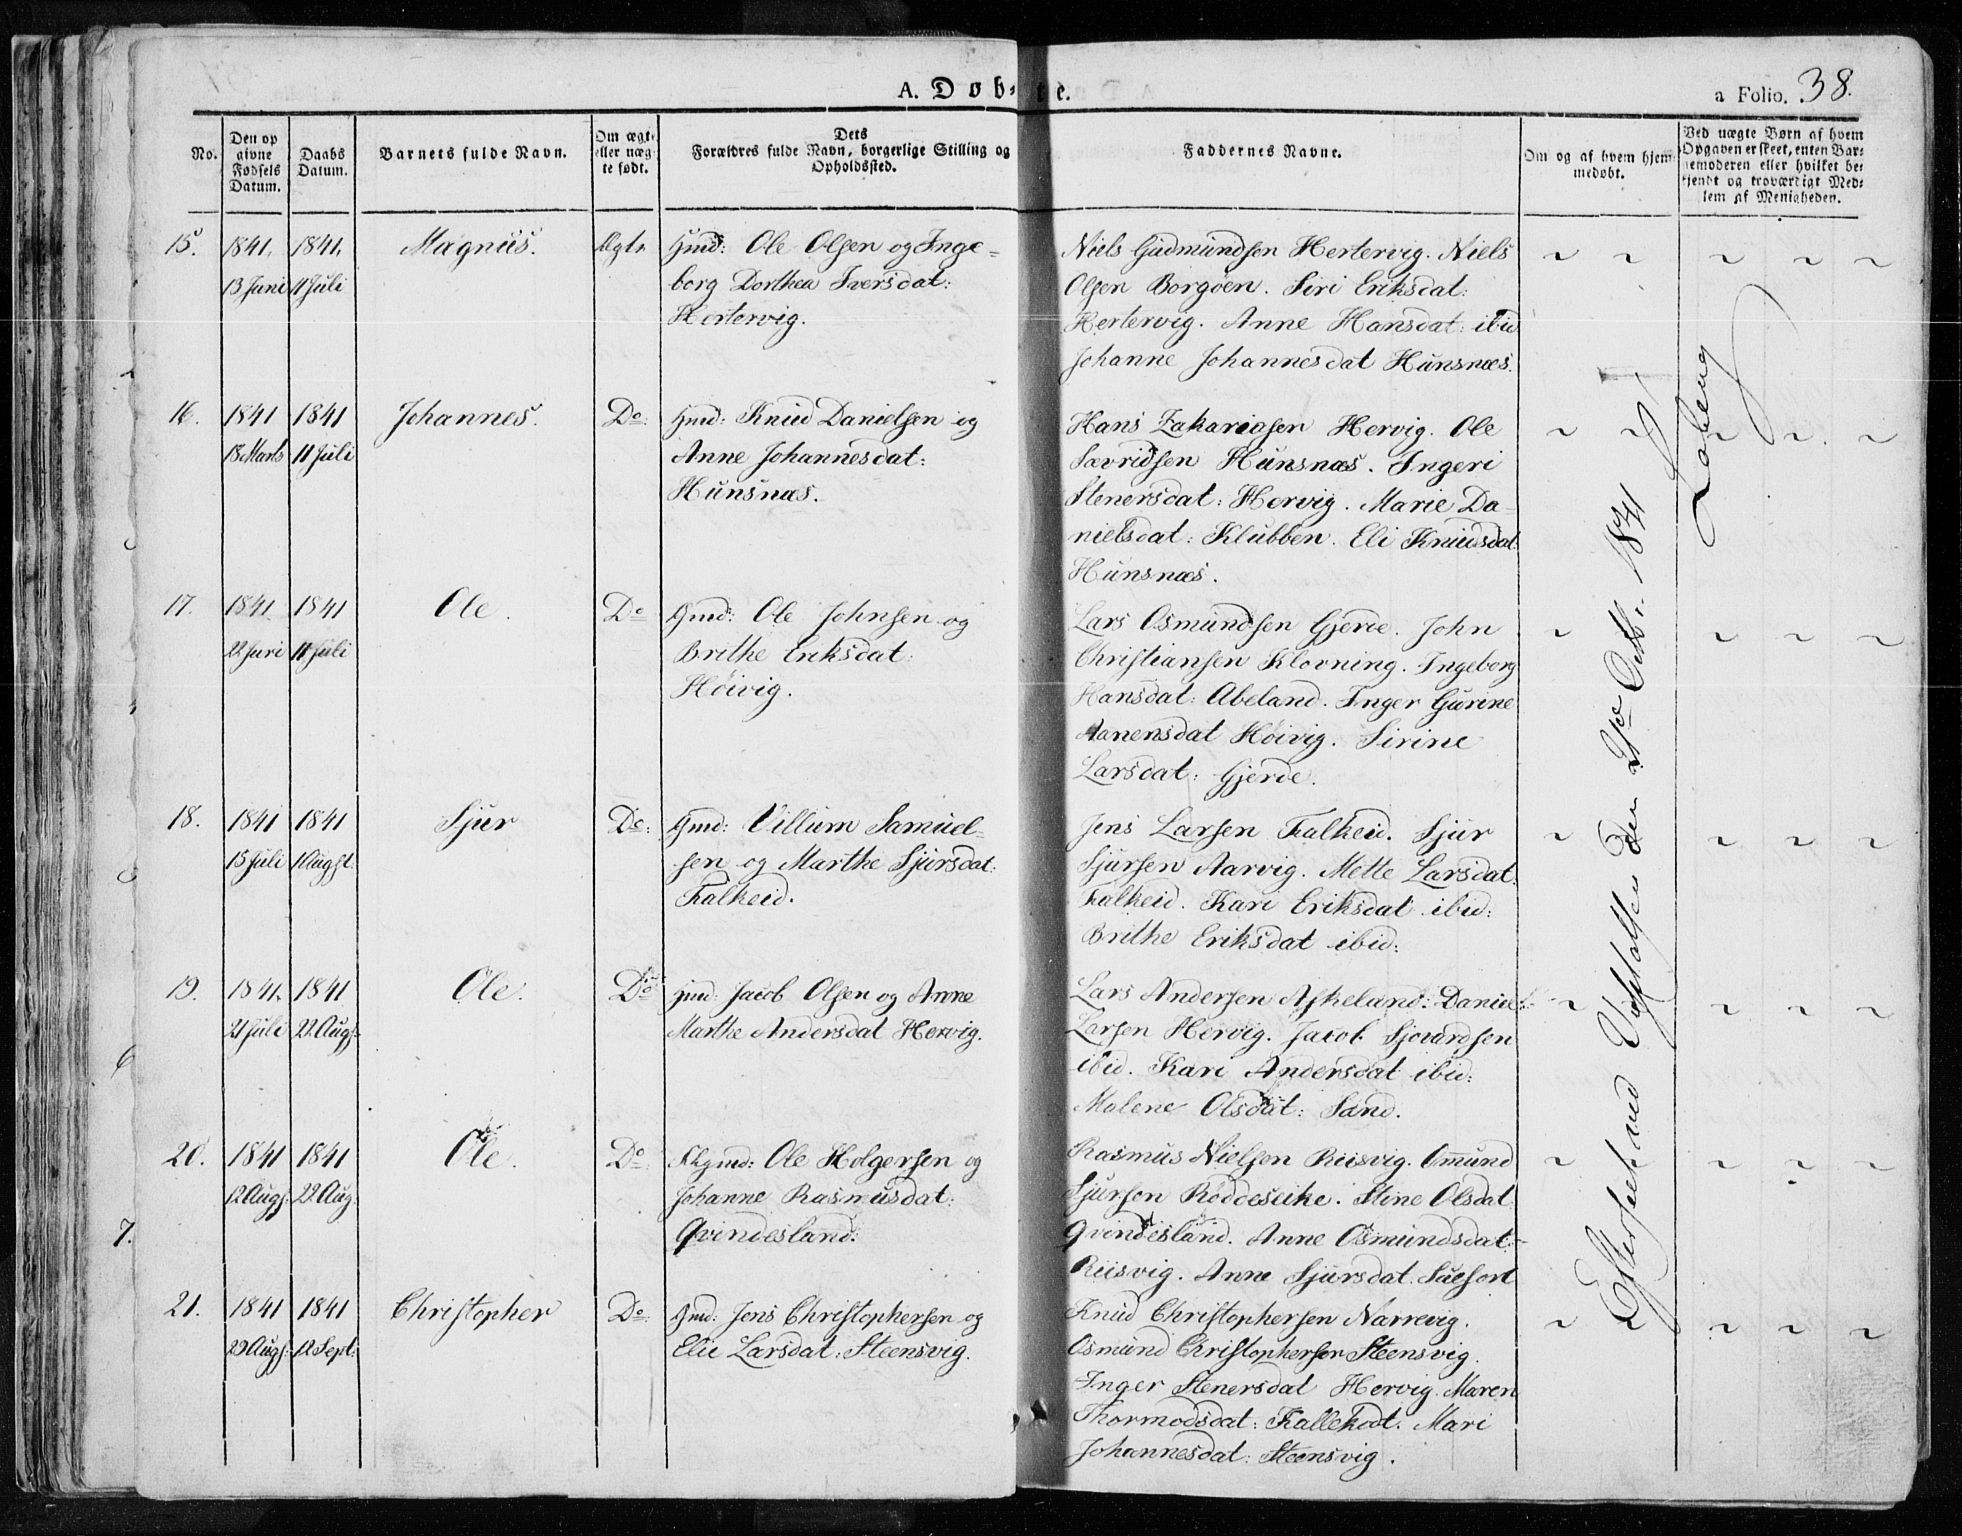 A. Døb-te.
a Folio. 38.
No.
Den op
givne
Fødsels
Datum.
Daabs
Datum.
Barnets fulde Navn.
Om ægte
eller uæg-
te født.
Dets
Forældres fulde Navn, borgerlige Stilling og
Opholdssted.
Faddernes Navne.
Om og af hvem hjem-
medøbt.
Ved uægte Børn af hvem
Opgaven er skeet, enten Bar-
nemoderen eller hvilket be-
kjendt og troværdigt Med-
lem af Menigheden.
15.
1841.
13 Juni
1841.
11 Juli
Magnus.
Ægte
Gmd: Ole Olsen og Inge-
borg Dorthea Iversdat:
Hertervig.
Niels Gudmundsen Hertervig. Niels
Olsen Borgøen. Siri Eriksdat:
Hertervig. Anne Hansdat: ibid
Johanne Johannesdat Hunsnæs.
16.
1841
13 Marts
1841
11 Juli
Johannes.
Do:
Gmd: Knud Danielsen og
Anne Johannesdat:
Hunsnæs.
Hans Zakariasen Hervig. Ole
Sævridsen Hunsnæs. Ingeri
Stenersdat: Hervig. Marie Da-
nielsdat: Klubben. Eli Knudsdat:
Hunsnæs.
17.
1841.
22 Juni
1841
11 Juli
Ole.
Do
Gmd: Ole Johnsen og
Brithe Eriksdat:
Høivig.
Lars Osmundsen Gjerde. John
Christiansen Klovning. Ingeborg
Hansdat: Abeland. Inger Gurine
Aanensdat Høivig. Sirine
Larsdat: Gjerde.
18.
1841
15 Juli
1841
1 Augst.
Sjur
Do:
Gmd: Villum Samuel-
sen og Marthe Sjursdat:
Falkeid.
Jens Larsen Falkeid. Sjur
Sjursen Aarvig. Mette Larsdat.
Falkeid. Kari Eriksdat ibid:
Brithe Eriksdat ibid:
19.
1841.
21 Juli
1841
22 Augs:
Ole.
Do
Gmd: Jacob Olsen og Anne
Marthe Andersdat Hervig.
Lars Andersen Askeland: Daniel
Larsen Hervig. Jacob Sjovardsen
ibid. Kari Andersdat ibid:
Malene Olsdat: Sand.
20.
1841
12 Augs:
1841
22 Aug.
Ole.
Do
Ole Holgersen og
Johanne Rasmusdat:
Qvindesland.
Rasmus Nielsen Riisvig. Omund
Sjursen Røddeseike. Stine Olsdat
Qvindesland. Anne Osmundsdat:
Riisvig. Anne Sjursdat.
21.
1841
29 Augs:
1841
12 Sept:
Christopher
Do:
Gmd: Jens Christophersen og
Elie Larsdat: Steensvig.
Knud Christophersen Narrevig.
Osmund Christophersen Steensvig.
Inger Stenersdat Hervig. Maren
Thormodsdat: Kallekodt. Mari
Johannesdat: Steensvig.
Efterseet ved Visitatsen den Octbr. 1841